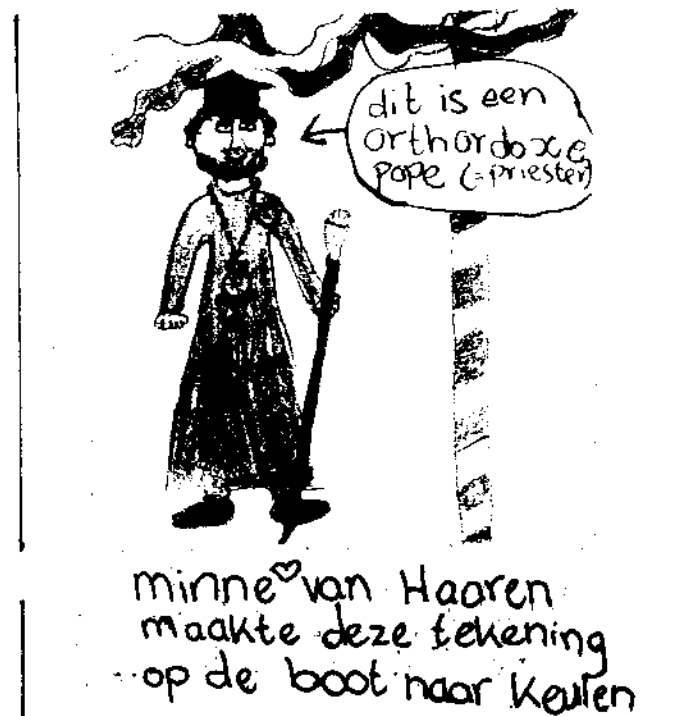 dit is een
orthordoxe
pope (=priester)
minne van Haaren
maakte deze tekening
op de boot naar Keulen